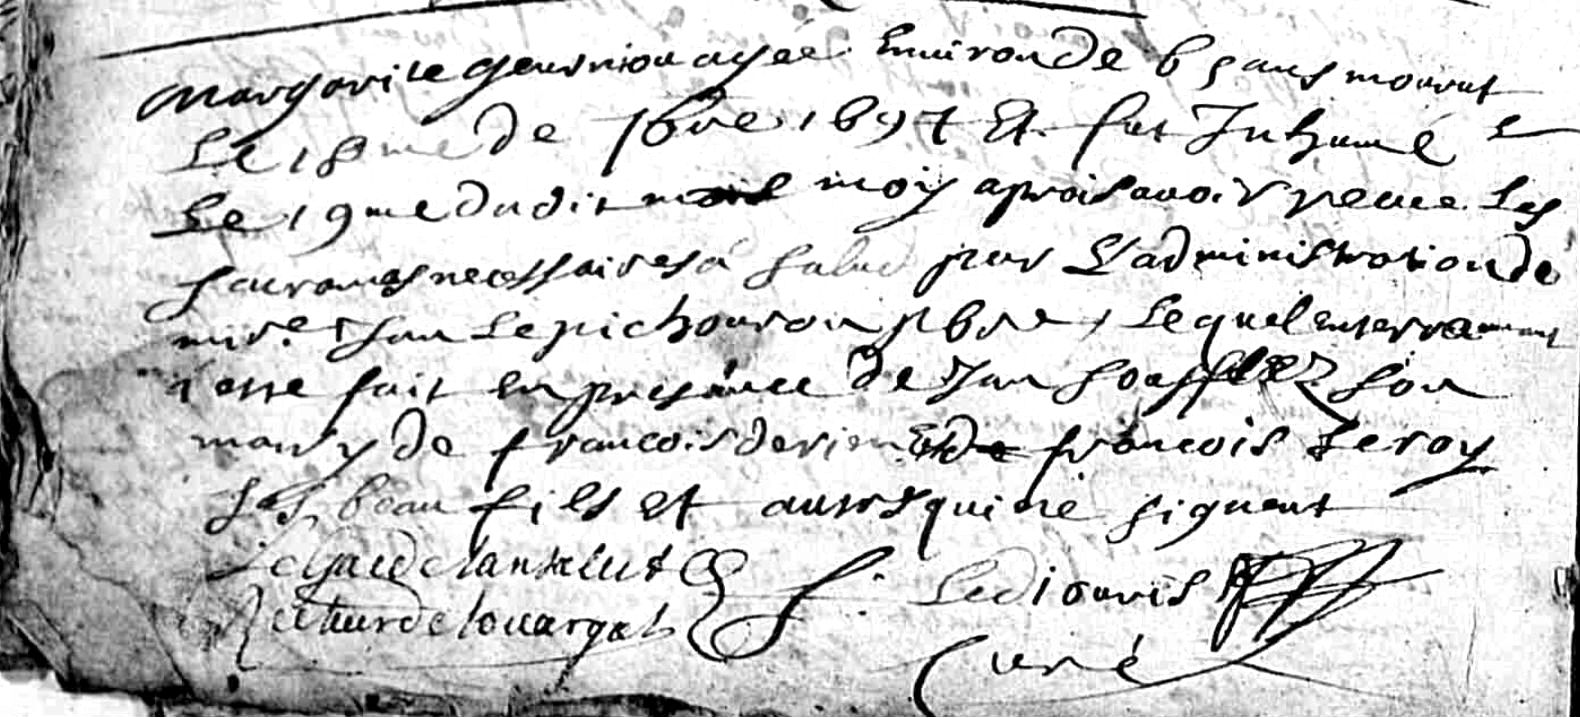 Margarite geusniou agée Environ de 65 ans mourut
Le 18me de 9bre 1697 Et fut Inhumé
Le 19me dudit moy aprois avoir receue Les
sacrames necessaires a salud par L'administration de
mire Jan Le pichouron pbre, Lequel enterremant
a este fait en presance de Jan son
mary de francois derien Et de francois Le roy
ses beau fils et autres qui ne signent
Recteur de louargat
f: Le diouris
Curé